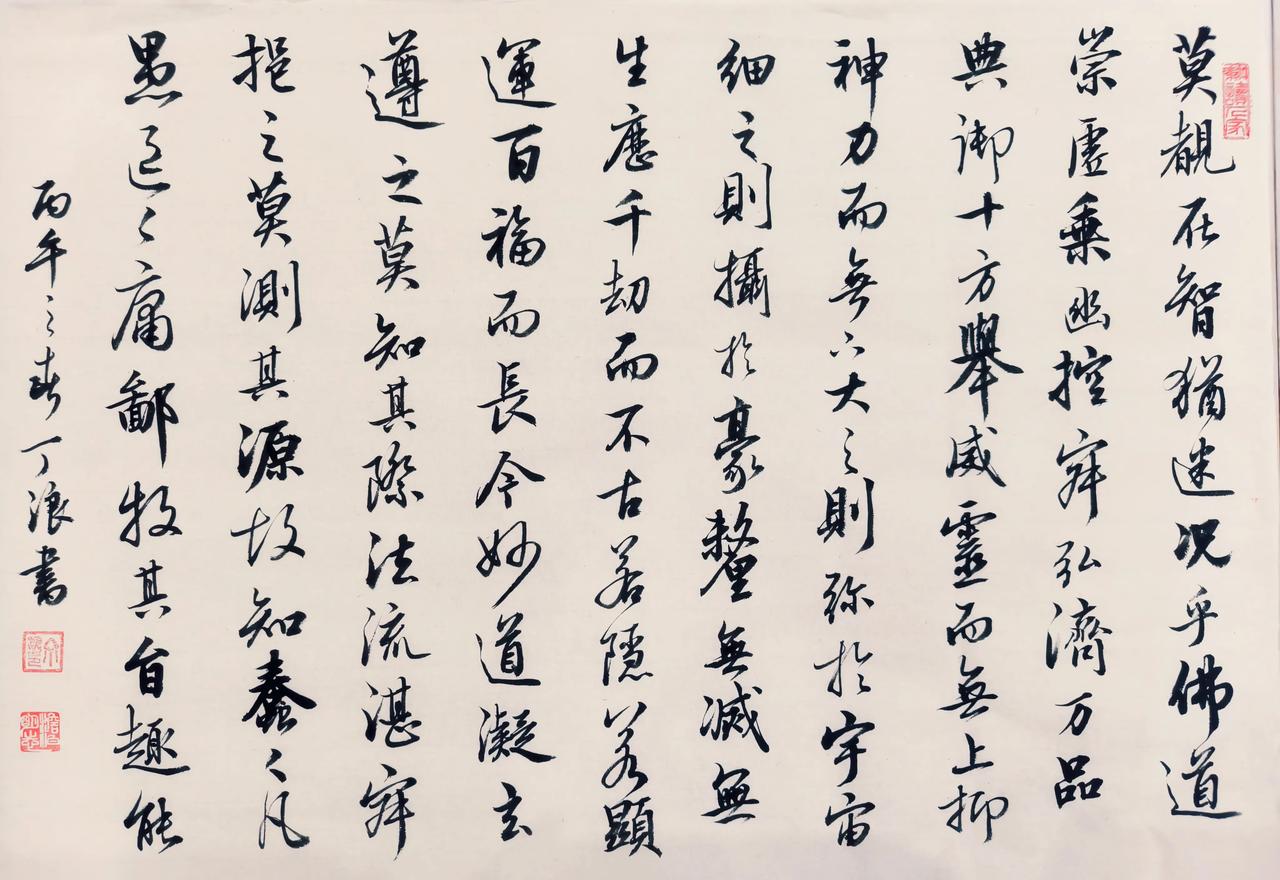 莫覩在智猶迷况乎佛道
崇虛乗幽控寂弘濟万品
典御十方舉威靈而無上抑
神力而無下大之則弥於宇宙
細之則攝於豪釐無滅無
生歷千劫而不古若隱若顯
運百福而長今妙道凝玄
遵之莫知其際法流湛寂
挹之莫測其源故知蠢々凡
愚區々庸鄙投其旨趣能
丙午之春丁浪書